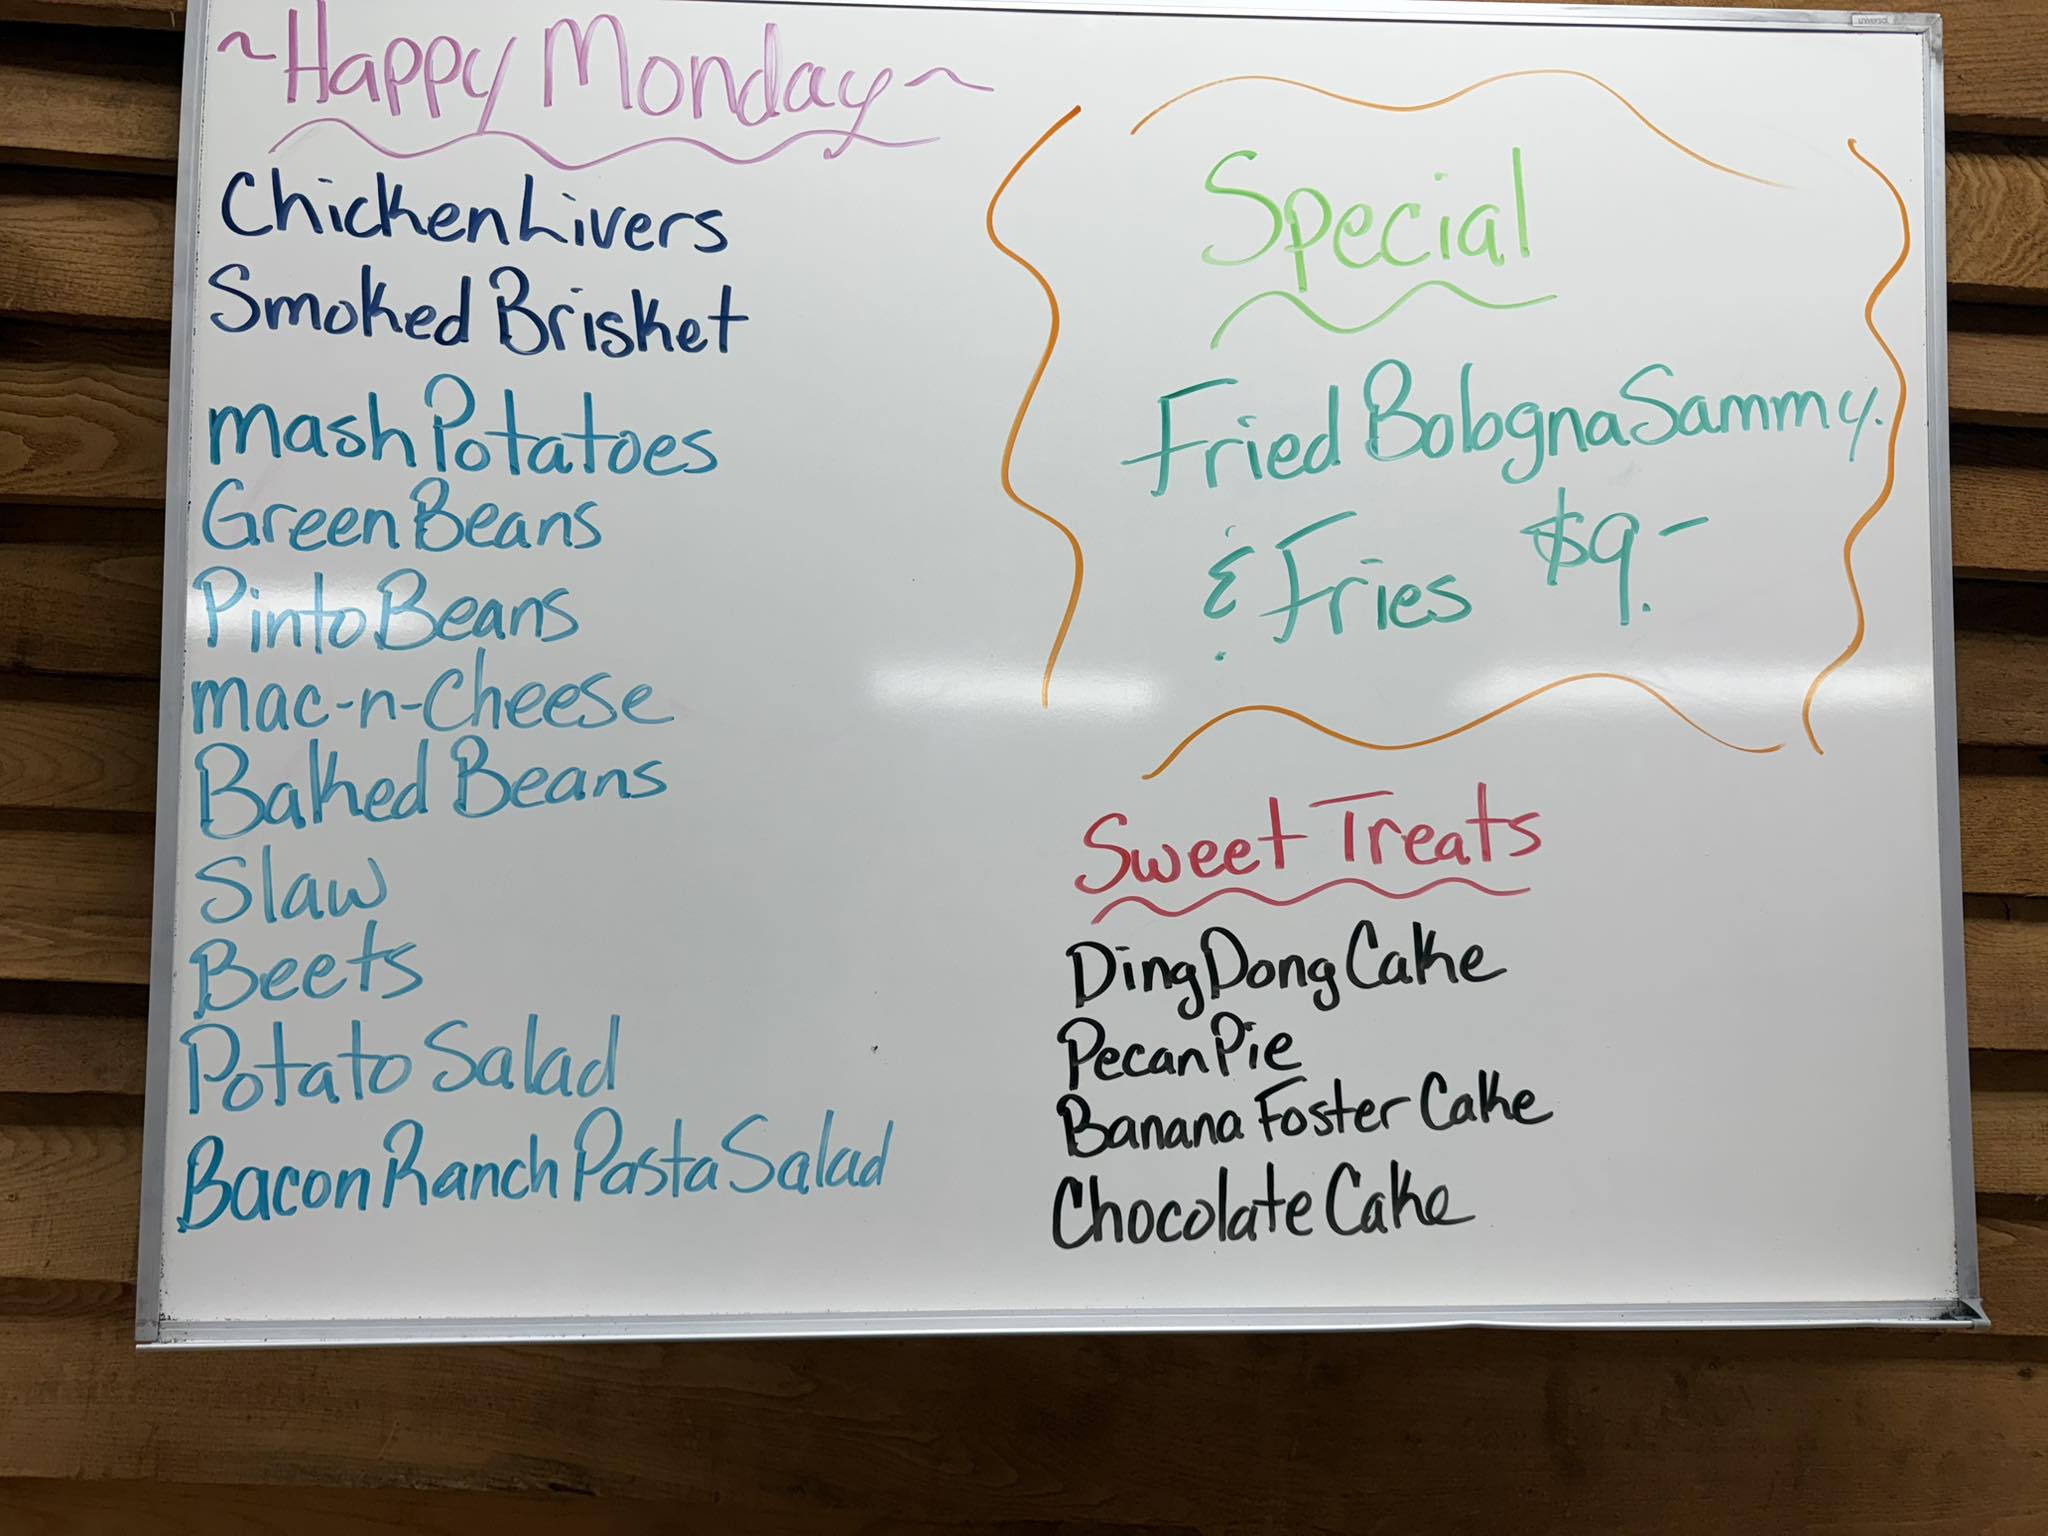 ~Happy Monday~
Chicken Livers
Smoked Brisket
Mash Potatoes
Green Beans
Pinto Beans
Mac-n-Cheese
Baked Beans
Slaw
Beets
Potato Salad
Bacon Ranch Pasta Salad
Special
Fried Bologna Sammy.
& Fries $9.-
Sweet Treats
Ding Dong Cake
Pecan Pie
Banana Foster Cake
Chocolate Cake
universal